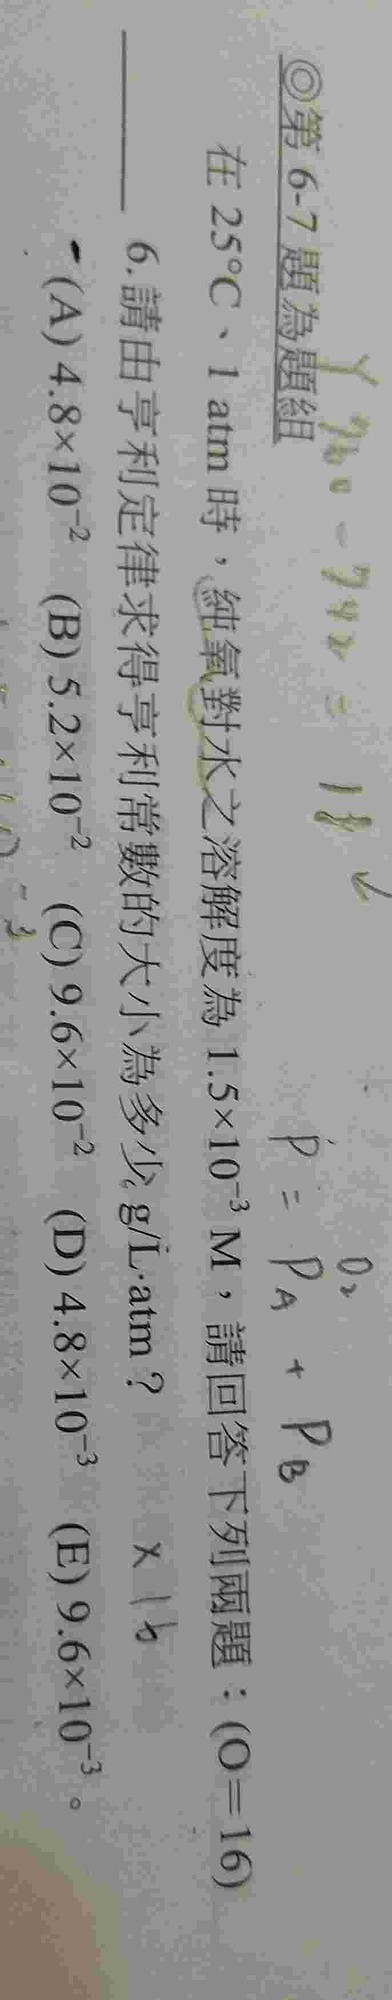 760 - 742 = 18
◎第 6-7 題為題組
O₂
P = PA + PB
在 25°C、1 atm 時，純氧對水之溶解度為 1.5×10⁻³ M，請回答下列兩題：(O＝16)
6.請由亨利定律求得亨利常數的大小為多少 g/L·atm？ × 16
(A) 4.8×10⁻² (B) 5.2×10⁻² (C) 9.6×10⁻² (D) 4.8×10⁻³ (E) 9.6×10⁻³。